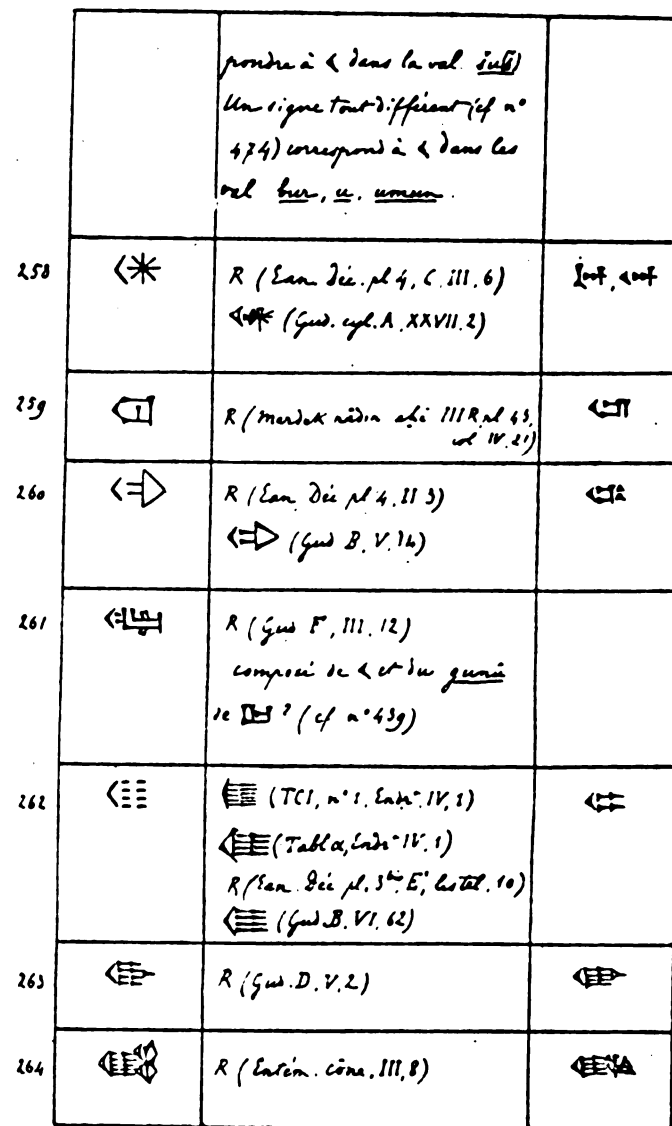 pondre à 𒌋 dans la val. šuš)
Un signe tout différent (cf n°
474) correspond à 𒌋 dans les
val bur, u, umun.
258 R (Ean. Déc. pl 4, C. III, 6)
(Gud. cyl. A. XXVII. 2)
259 R (Marduk nâdin ahi III R. pl 43,
col IV. 21)
260 R (Ean. Déc pl 4. II 3)
(Gud B. V. 14)
261 R (Gud F, III. 12)
composé de 𒌋 et du gunû
de ? (cf n° 439)
262 (TCI, n° 1, IV, 1)
(Tabl α, IV. 1)
R (Ean. Déc pl. 3 bis, 10)
(Gud. B. VI. 62)
263 R (Gud. D. V. 2)
264 R (Entém. cône, III, 8)